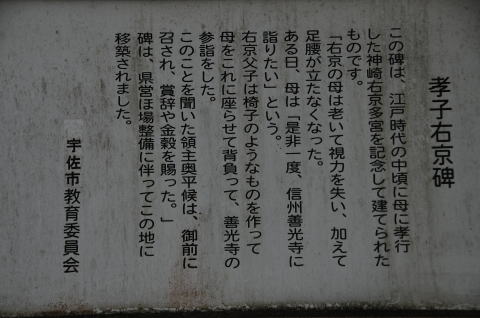 孝子右京碑
この碑は、江戸時代の中頃に母に孝行
した神崎右京多宮を記念して建てられた
ものです。
「右京の母は老いて視力を失い、加えて
足腰が立たなくなった。
ある日、母は「是非一度、信州善光寺に
詣りたい」という。
右京父子は椅子のようなものを作って
母をこれに座らせて背負って、善光寺の
参詣をした。
このことを聞いた領主奥平候は、御前に
召され、賞辞や金穀を賜った。」
碑は、県営ほ場整備に伴ってこの地に
移築されました。
宇佐市教育委員会